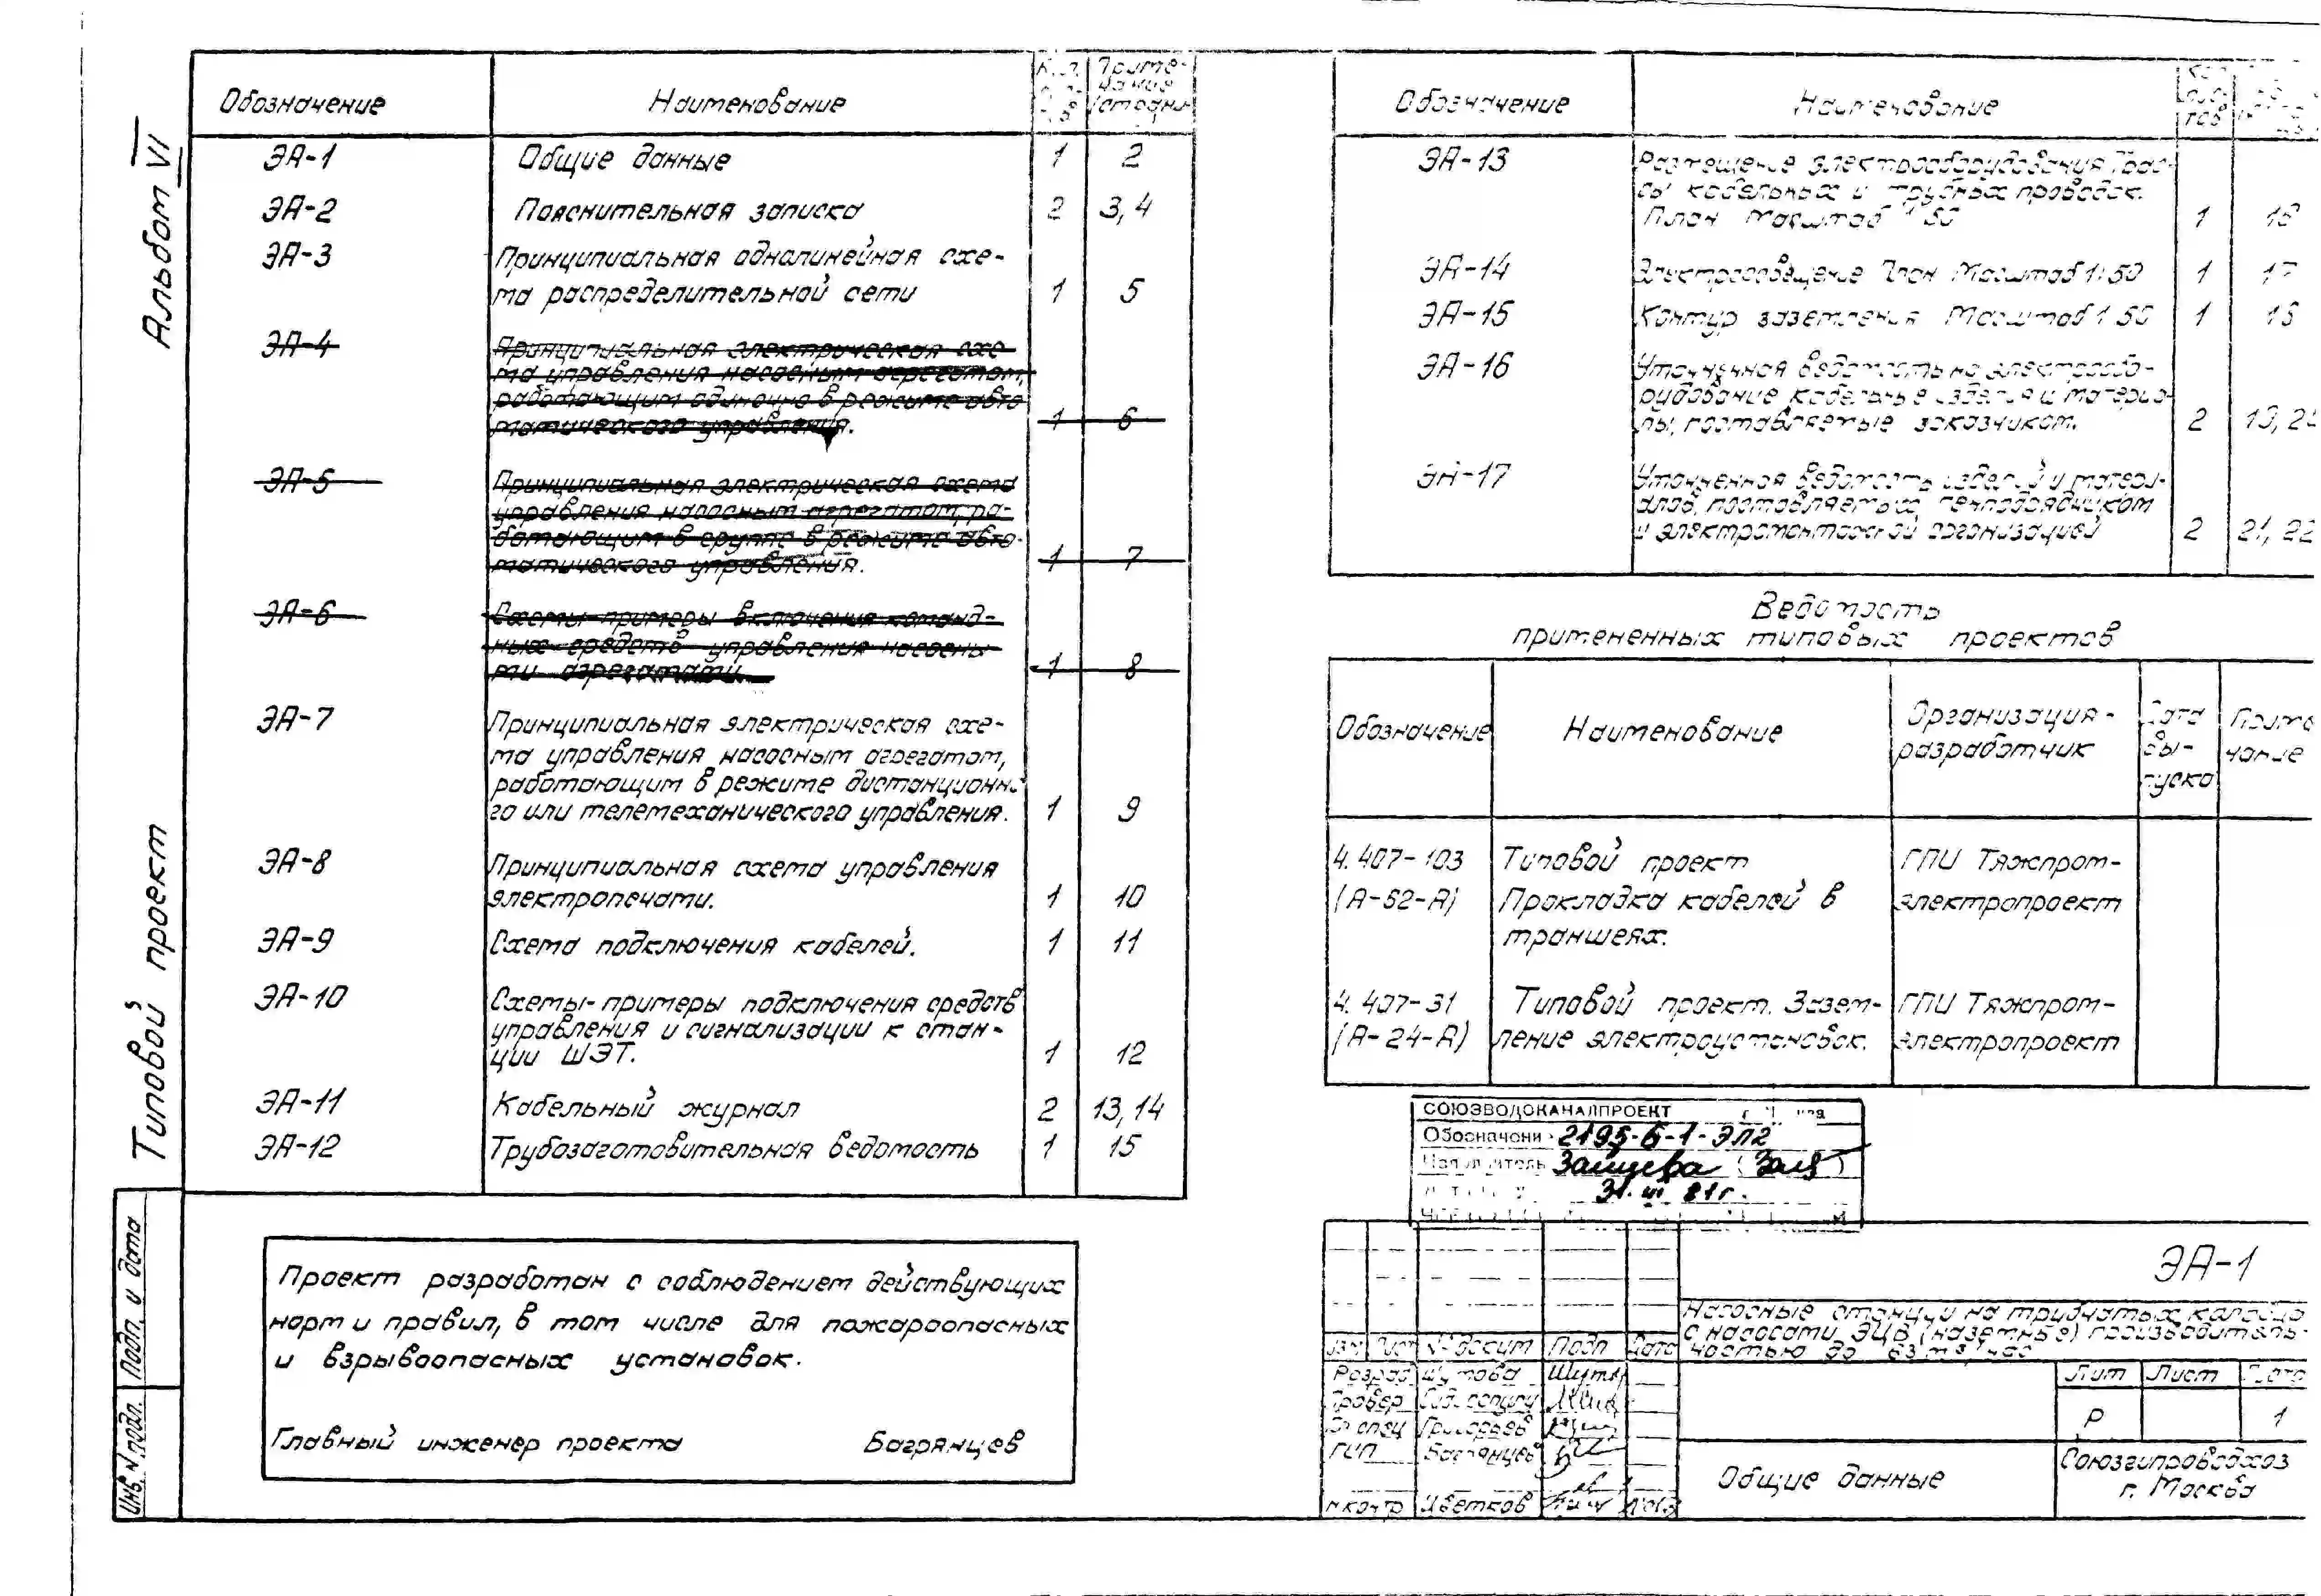 Альбом VI
Типовой проект
Обозначение
Наименование
ЭА-1
Общие данные
1
2
ЭА-2
Пояснительная записка
2
3,4
ЭА-3
Принципиальная однолинейная схе-
ма распределительной сети
1
5
ЭА-4
Принципиальная электрическая схе-
ма управления насосным агрегатом,
работающим одиночно в режиме авто-
матического управления.
1
6
ЭА-5
Принципиальная электрическая схема
управления насосным агрегатом, ра-
ботающим в группе в режиме авто-
матического управления.
1
7
ЭА-6
Схемы примеры включения команд-
ных средств управления насосны-
ми агрегатами.
1
8
ЭА-7
Принципиальная электрическая схе-
ма управления насосным агрегатом,
работающим в режиме дистанционно
го или телемеханического управления.
1
9
ЭА-8
Принципиальная схема управления
электропечами.
1
10
ЭА-9
Схема подключения кабелей.
1
11
ЭА-10
Схемы-примеры подключения средств
управления и сигнализации к стан-
ции ШЭТ.
1
12
ЭА-11
Кабельный журнал
2
13,14
ЭА-12
Трубозаготовительная ведомость
1
15
Проект разработан с соблюдением действующих
норм и правил, в том числе для пожароопасных
и взрывоопасных установок.
Главный инженер проекта
Багрянцев
Подп. и дата
Инв.N подл.
Обозначение
Наименование
ЭА-13
Размещение электрооборудования Трас-
сы кабельных и трубных проводок.
План Масштаб 1 50
1
16
ЭА-14
Электроосвещение План Масштаб 1:50
1
17
ЭА-15
Контур заземления Масштаб 1 50
1
18
ЭА-16
Уточненная ведомость на электрообо-
рудование кабельные изделия и материа-
лы, поставляемые заказчиком.
2
ЭА-17
Уточненная ведомость изделий и матери-
алов, поставляемых генподрядчиком
и электромонтажной организацией
2
21, 22
Ведомость
примененных типовых проектов
Обозначение
Наименование
Организация-
разработчик
Дата
вы-
пуска
Приме
чание
4.407-103
(А-62-А)
Типовой проект
Прокладка кабелей в
траншеях.
ГПИ Тяжпром-
электропроект
4.407-31
(А-24-А)
Типовой проект. Зазем-
ление электроустановок.
ГПИ Тяжпром-
электропроект
СОЮЗВОДОКАНАЛПРОЕКТ
2195-6-1-ЭЛ2
Зайцева
31.III 81г.
ЭА-1
Насосные станции на трубчатых колодца
с насосами ЭЦВ (наземные) производитель-
ностью до 63 м³/час
Изм
Лист
N докум
Подп
Дата
Разраб
Шутова
Провер
Гл спец
Григорьев
ГИП
Багрянцев
Н контр
Цветков
Лит
Лист
Р
1
Общие данные
Союзгипроводхоз
г. Москва